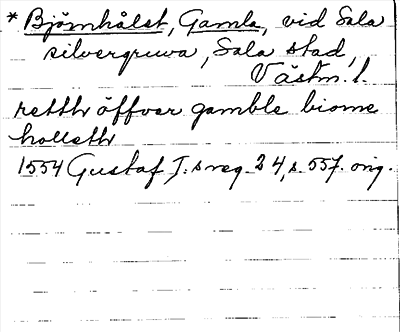 * Björnhålet, Gamla, vid Sala
silvergruva, Sala stad,
Västm. l.
retthr öffver gamble biorne
holleth
1554 Gustaf I:s reg. 24, s. 557. orig.